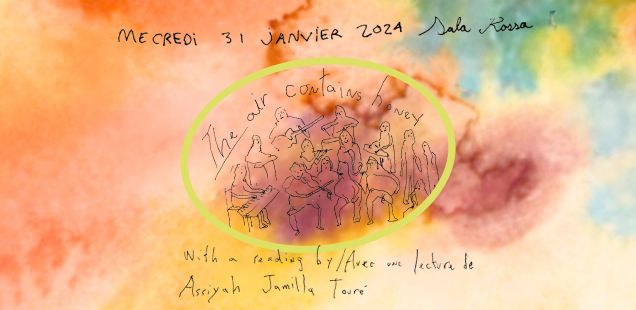 MECREDI 31 JANVIER 2024 Sala Rossa
The air contains honey
With a reading by/Avec une lecture de
Assiyah Jamilla Touré